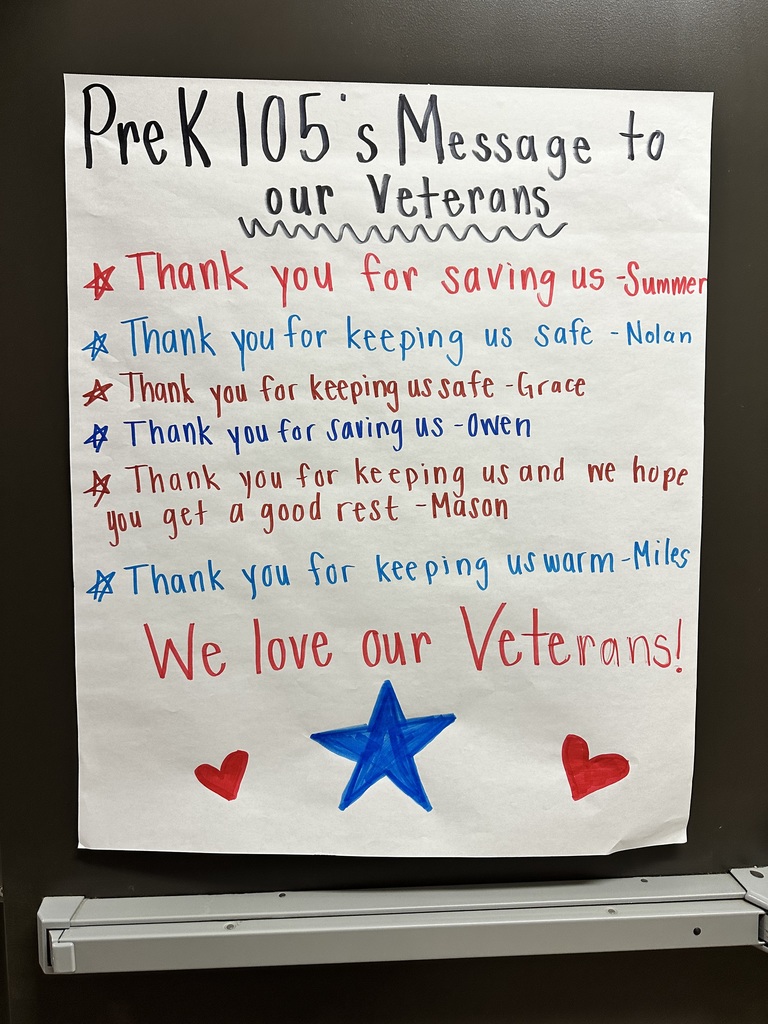 PreK 105's Message to
our Veterans
Thank you for saving us -Summer
Thank you for keeping us safe -Nolan
Thank you for keeping us safe -Grace
Thank you for saving us -Owen
Thank you for keeping us and we hope
you get a good rest -Mason
Thank you for keeping us warm -Miles
We love our Veterans!